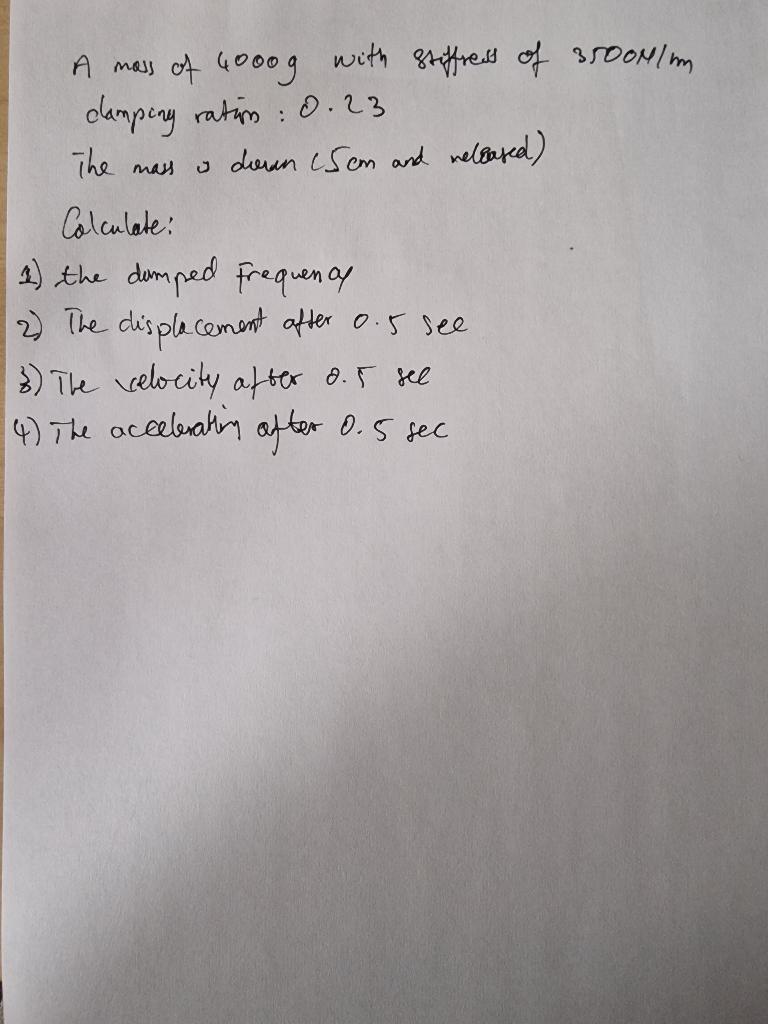 A mass of 4000g with stiffness of 3500N/m
damping ration : 0.23
The mass is drawn (5cm and released)
Calculate:
1) the damped frequency
2) The displacement after 0.5 sec
3) The velocity after 0.5 sec
4) The acceleration after 0.5 sec